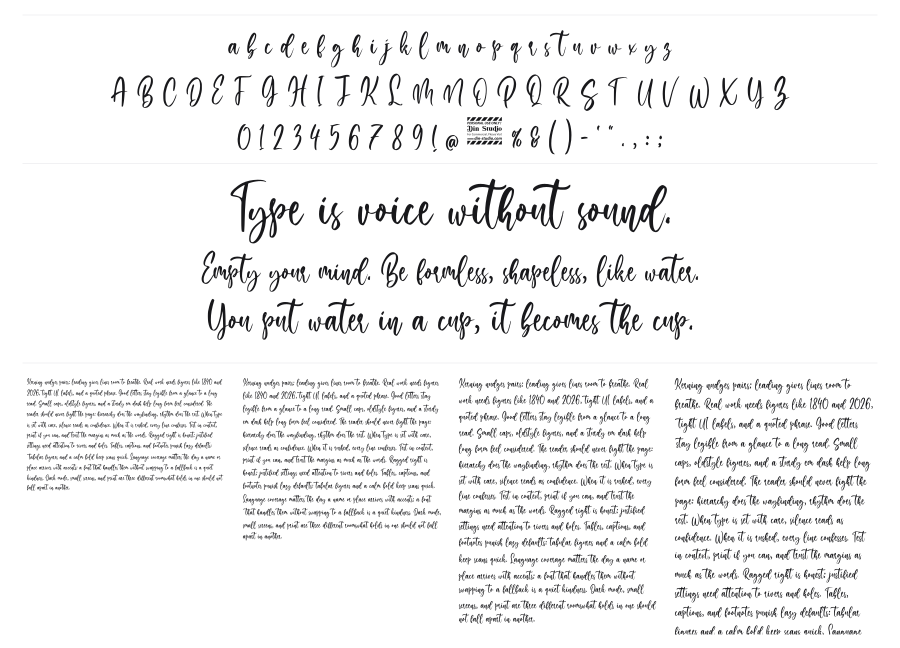 a b c d e f g h i j k l m n o p q r s t u v w x y z
A B C D E F G H I J K L M N O P Q R S T U V W X Y Z
0 1 2 3 4 5 6 7 8 9 ! @ PERSONAL USE ONLY! Din Studio din-studio.com % & ( ) - ' " . , ; :
Type is voice without sound.
Empty your mind. Be formless, shapeless, like water.
You put water in a cup, it becomes the cup.
Kerning nudges pairs; leading gives lines room to breathe. Real work needs figures like 1840 and
2026, Tight UI labels, and a quoted phrase. Good letters stay legible from a glance to a long
read. Small caps, oldstyle figures, and a steady em dash help long form feel considered. The
reader should never fight the page; hierarchy does the wayfinding, rhythm does the rest. When Type
is set with care, silence reads as confidence. When it is rushed, every line confesses. Test in context,
print if you can, and trust the margins as much as the words. Ragged right is honest; justified
settings need attention to rivers and holes. Tables, captions, and footnotes punish lazy defaults:
tabular figures and a calm bold keep scans quick. Language coverage matters the day a name or
place arrives with accents; a font that handles them without swapping to a fallback is a quiet
kindness. Dark mode, small screens, and print are three different rooms what holds in one should not
fall apart in another.
Kerning nudges pairs; leading gives lines room to breathe. Real work needs figures
like 1840 and 2026, Tight UI labels, and a quoted phrase. Good letters stay
legible from a glance to a long read. Small caps, oldstyle figures, and a steady
em dash help long form feel considered. The reader should never fight the page;
hierarchy does the wayfinding, rhythm does the rest. When Type is set with care,
silence reads as confidence. When it is rushed, every line confesses. Test in context,
print if you can, and trust the margins as much as the words. Ragged right is
honest; justified settings need attention to rivers and holes. Tables, captions, and
footnotes punish lazy defaults: tabular figures and a calm bold keep scans quick.
Language coverage matters the day a name or place arrives with accents; a font
that handles them without swapping to a fallback is a quiet kindness. Dark mode,
small screens, and print are three different rooms what holds in one should not fall
apart in another.
Kerning nudges pairs; leading gives lines room to breathe. Real
work needs figures like 1840 and 2026, Tight UI labels, and a
quoted phrase. Good letters stay legible from a glance to a long
read. Small caps, oldstyle figures, and a steady em dash help
long form feel considered. The reader should never fight the page;
hierarchy does the wayfinding, rhythm does the rest. When Type is
set with care, silence reads as confidence. When it is rushed, every
line confesses. Test in context, print if you can, and trust the
margins as much as the words. Ragged right is honest; justified
settings need attention to rivers and holes. Tables, captions, and
footnotes punish lazy defaults: tabular figures and a calm bold
keep scans quick. Language coverage matters the day a name or
place arrives with accents; a font that handles them without
swapping to a fallback is a quiet kindness. Dark mode, small
screens, and print are three different rooms what holds in one should
not fall apart in another.
Kerning nudges pairs; leading gives lines room to
breathe. Real work needs figures like 1840 and 2026,
Tight UI labels, and a quoted phrase. Good letters
stay legible from a glance to a long read. Small
caps, oldstyle figures, and a steady em dash help long
form feel considered. The reader should never fight the
page; hierarchy does the wayfinding, rhythm does the
rest. When Type is set with care, silence reads as
confidence. When it is rushed, every line confesses. Test
in context, print if you can, and trust the margins as
much as the words. Ragged right is honest; justified
settings need attention to rivers and holes. Tables,
captions, and footnotes punish lazy defaults: tabular
figures and a calm bold keep scans quick. Language